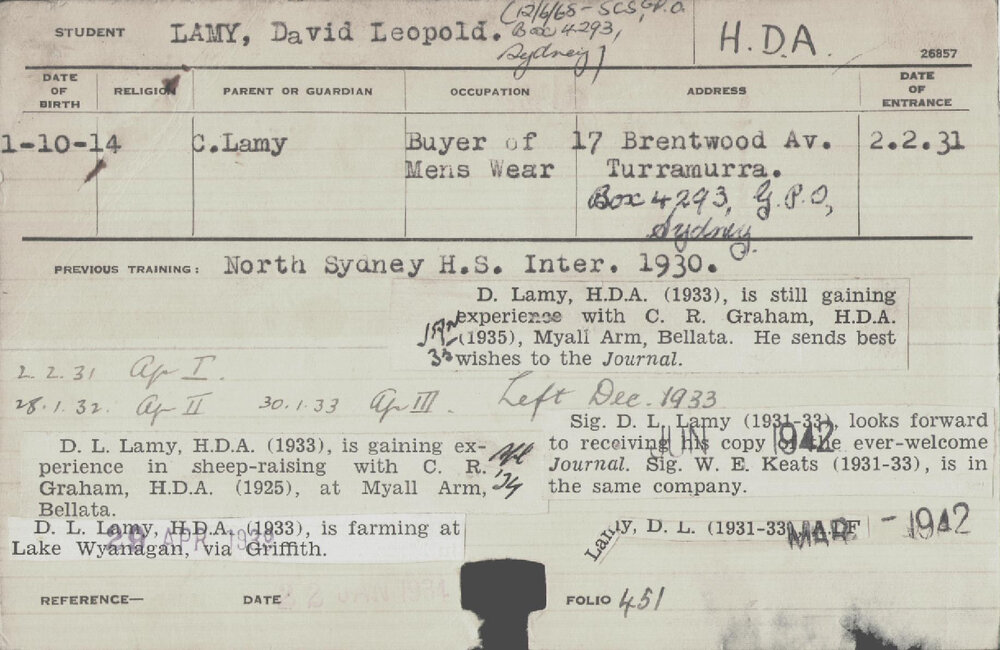 STUDENT LAMY, David Leopold. (12/6/68 - SCS, G.P.O. Box 4293, Sydney) H.D.A. 26857
DATE OF BIRTH RELIGION PARENT OR GUARDIAN OCCUPATION ADDRESS DATE OF ENTRANCE
1-10-14 C.Lamy Buyer of 17 Brentwood Av. 2.2.31
Mens Wear Turramurra.
Box 4293, G.P.O,
Sydney.
PREVIOUS TRAINING: North Sydney H.S. Inter. 1930.
D. Lamy, H.D.A. (1933), is still gaining
experience with C. R. Graham, H.D.A.
(1935), Myall Arm, Bellata. He sends best
wishes to the Journal.
2.2.31 Ag I.
28.1.32. Ag II 30.1.33 Ag III. Left Dec. 1933
D. L. Lamy, H.D.A. (1933), is gaining ex-
perience in sheep-raising with C. R.
Graham, H.D.A. (1925), at Myall Arm,
Bellata.
'34
Sig. D. L. Lamy (1931-33), looks forward
to receiving his copy of the ever-welcome
Journal. Sig. W. E. Keats (1931-33), is in
the same company.
JUN 1942
D. L. Lamy, H.D.A. (1933), is farming at
Lake Wyanagan, via Griffith.
APR
Lamy, D. L. (1931-33), A.I.F
MAR - 1942
REFERENCE— DATE FOLIO 451